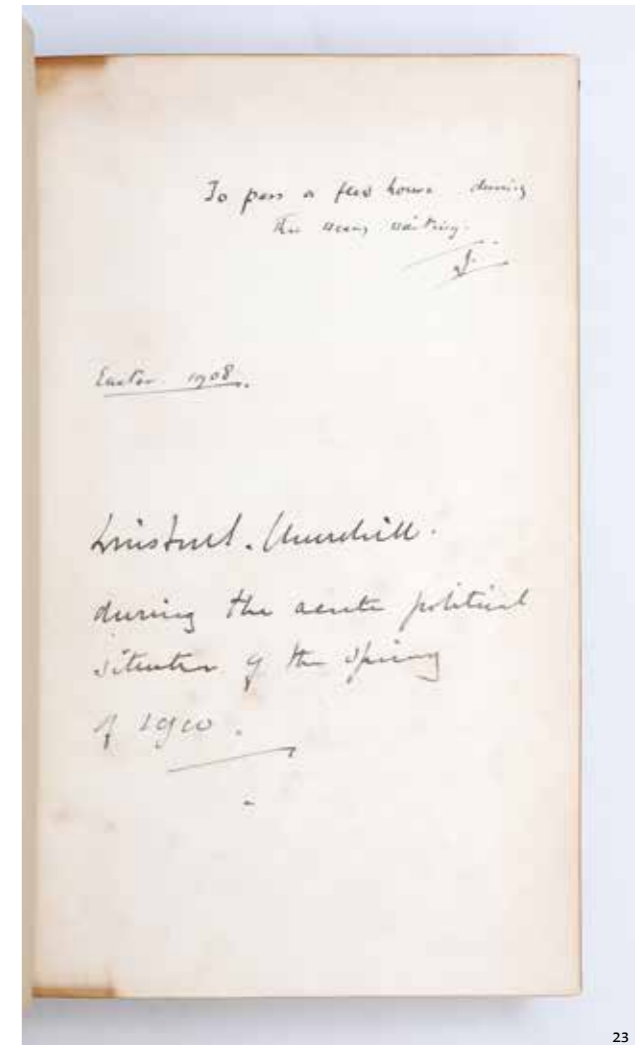 To pass a few hours during
the weary waiting.
J.
Easter 1908.
Winston S. Churchill.
during the acute political
situation of the spring
of 1910.
23